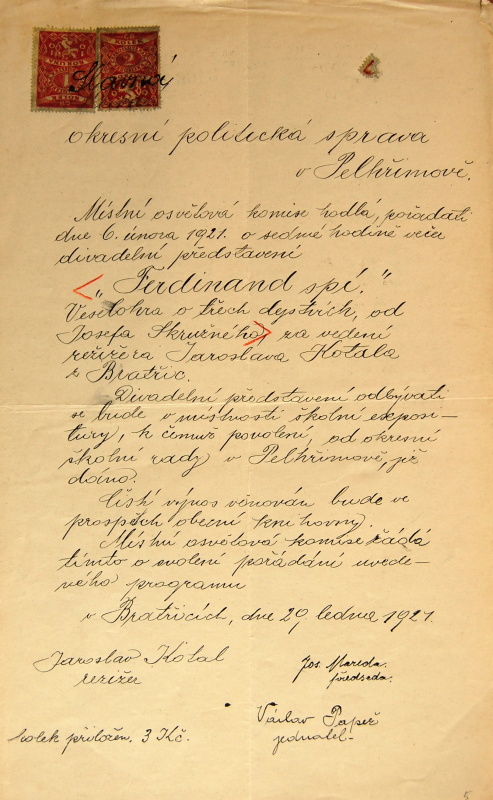 Slavná
okresní politická sprava
v Pelhřimově.
Místní osvětová komise hodlá, pořádati
dne 6. února 1921. o sedmé hodině večer
divadelní představení
„Ferdinand spí."
Veselohra o třech dějstvích, od
Josefa Skružného za vedení
režiséra Jaroslava Kotala
z Bratřic.
Divadelní představení odbývati
se bude v místnosti školní exposi-
tury, k čemuž povolení, od okresní
školní rady v Pelhřimově, již
dáno.
Čistý výnos věnován bude ve
prospěch obecní knihovny.
Místní osvětová komise žádá
tímto o svolení pořádání uvede-
ného programu
v Bratřicích, dne 29. ledna 1921.
Jaroslav Kotal
režiser
Jos. Mareda.
předseda.
Václav Papež
jednatel.
kolek přiložen. 3 Kč.
5